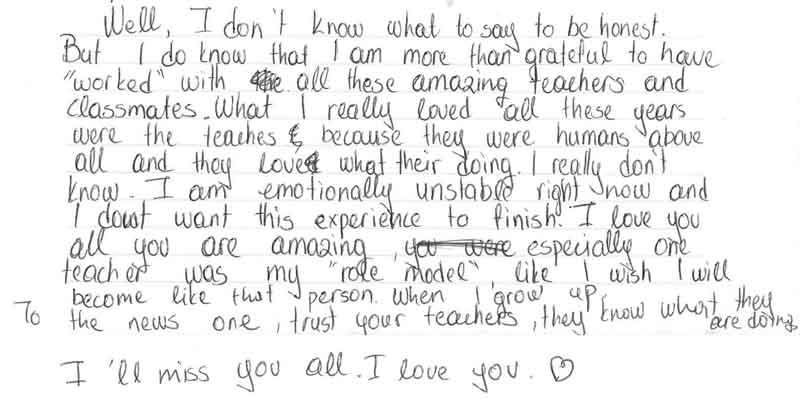 Well, I don't know what to say to be honest.
But I do know that I am more than grateful to have
"worked" with all these amazing teachers and
classmates. What I really loved all these years
were the teaches because they were humans above
all and they loved what their doing. I really don't
know. I am emotionally unstable right now and
I dont want this experience to finish! I love you
all you are amazing, you were especially one
teacher was my "role model", like I wish I will
become like that person. When I grow up
To the news one, trust your teachers, they know what they
are doing
I'll miss you all. I love you. ♡